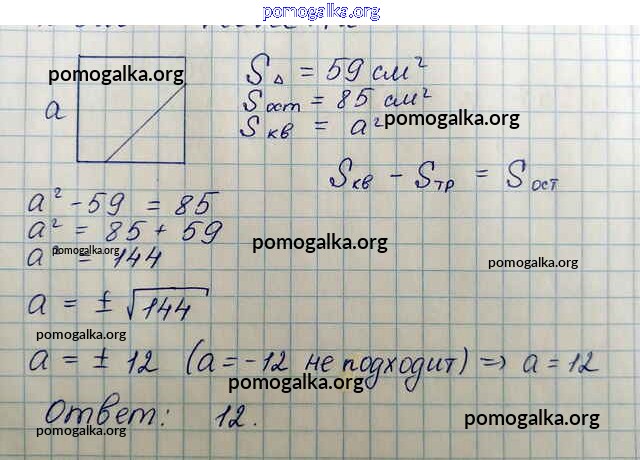 pomogalka.org
pomogalka.org
a
S△ = 59 см²
Sост = 85 см²
Sкв = a²
pomogalka.org
Sкв - Sтр = Sост
a² - 59 = 85
a² = 85 + 59
pomogalka.org
a² = 144
pomogalka.org
pomogalka.org
a = ± √144
pomogalka.org
a = ± 12 (a = -12 не подходит) => a = 12
pomogalka.org
Ответ: 12.
pomogalka.org
pomogalka.org